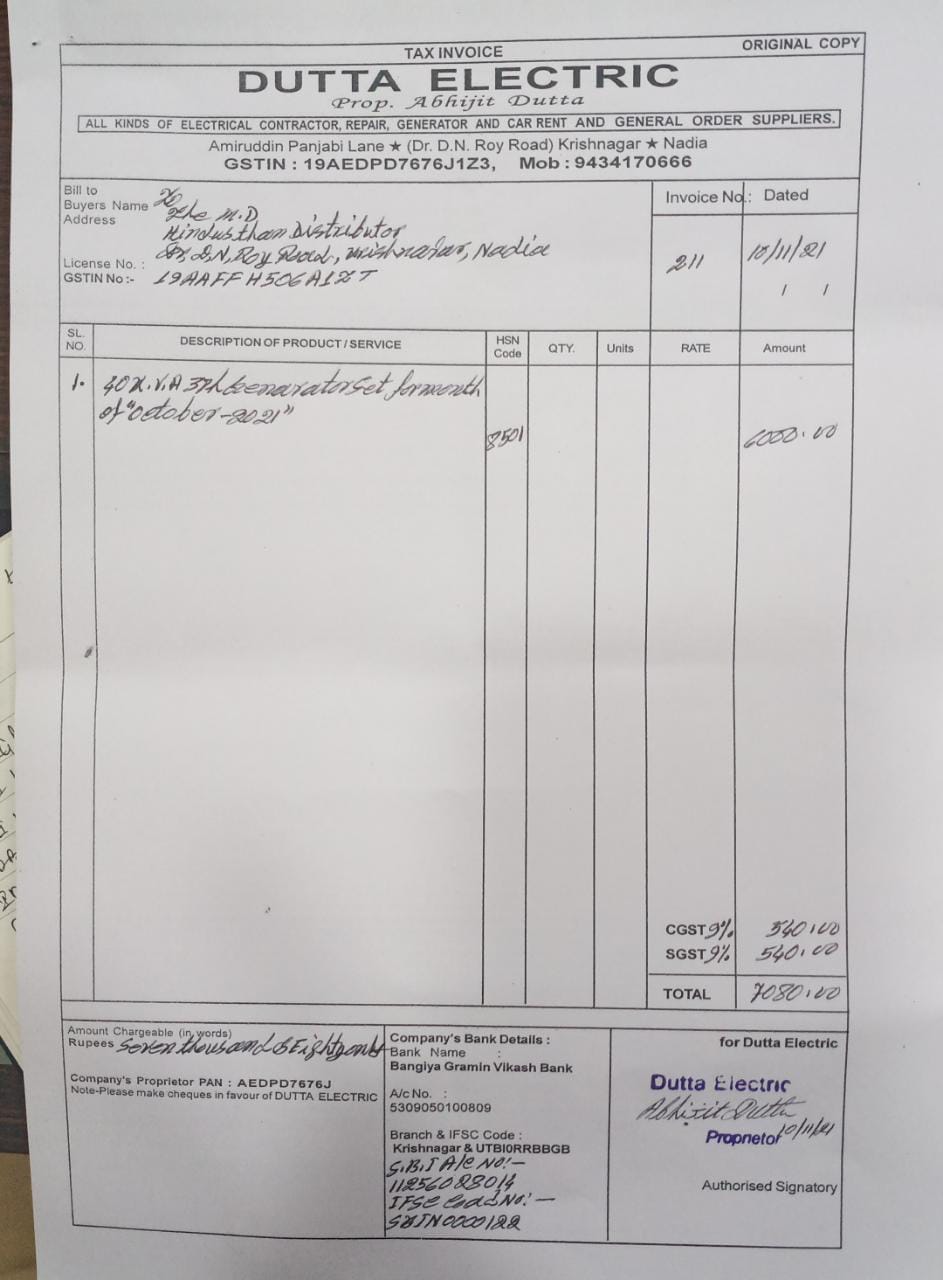 TAX INVOICE
ORIGINAL COPY
DUTTA ELECTRIC
Prop. Abhijit Dutta
ALL KINDS OF ELECTRICAL CONTRACTOR, REPAIR, GENERATOR AND CAR RENT AND GENERAL ORDER SUPPLIERS.
Amiruddin Panjabi Lane ★ (Dr. D.N. Roy Road) Krishnagar ★ Nadia
GSTIN : 19AEDPD7676J1Z3, Mob : 9434170666
Bill to
Buyers Name
The M.D
Address
Hindusthan Distributor
Dr. D.N, Roy Road, Krishnagar, Nadia
License No. :
GSTIN No :- 19AAFFH506A1ZT
Invoice No.: Dated
211 10/11/21
/ /
SL. NO. DESCRIPTION OF PRODUCT / SERVICE HSN Code QTY. Units RATE Amount
1. 40 K.V.A 3Ph Genarator Set for month
of "October-2021"
8501 6000.00
CGST 9% 540.00
SGST 9% 540.00
TOTAL 7080.00
Amount Chargeable (in words)
Rupees Seven thousand & Eighty only
Company's Proprietor PAN : AEDPD7676J
Note-Please make cheques in favour of DUTTA ELECTRIC
Company's Bank Details :
Bank Name :
Bangiya Gramin Vikash Bank
A/c No. :
5309050100809
Branch & IFSC Code :
Krishnagar & UTBI0RRBBGB
S.B.I A/c NO:-
11256028014
IFSC Code No:-
SBIN0000122
for Dutta Electric
Dutta Electric
Abhijit Dutta
Proprietor 10/11/21
Authorised Signatory